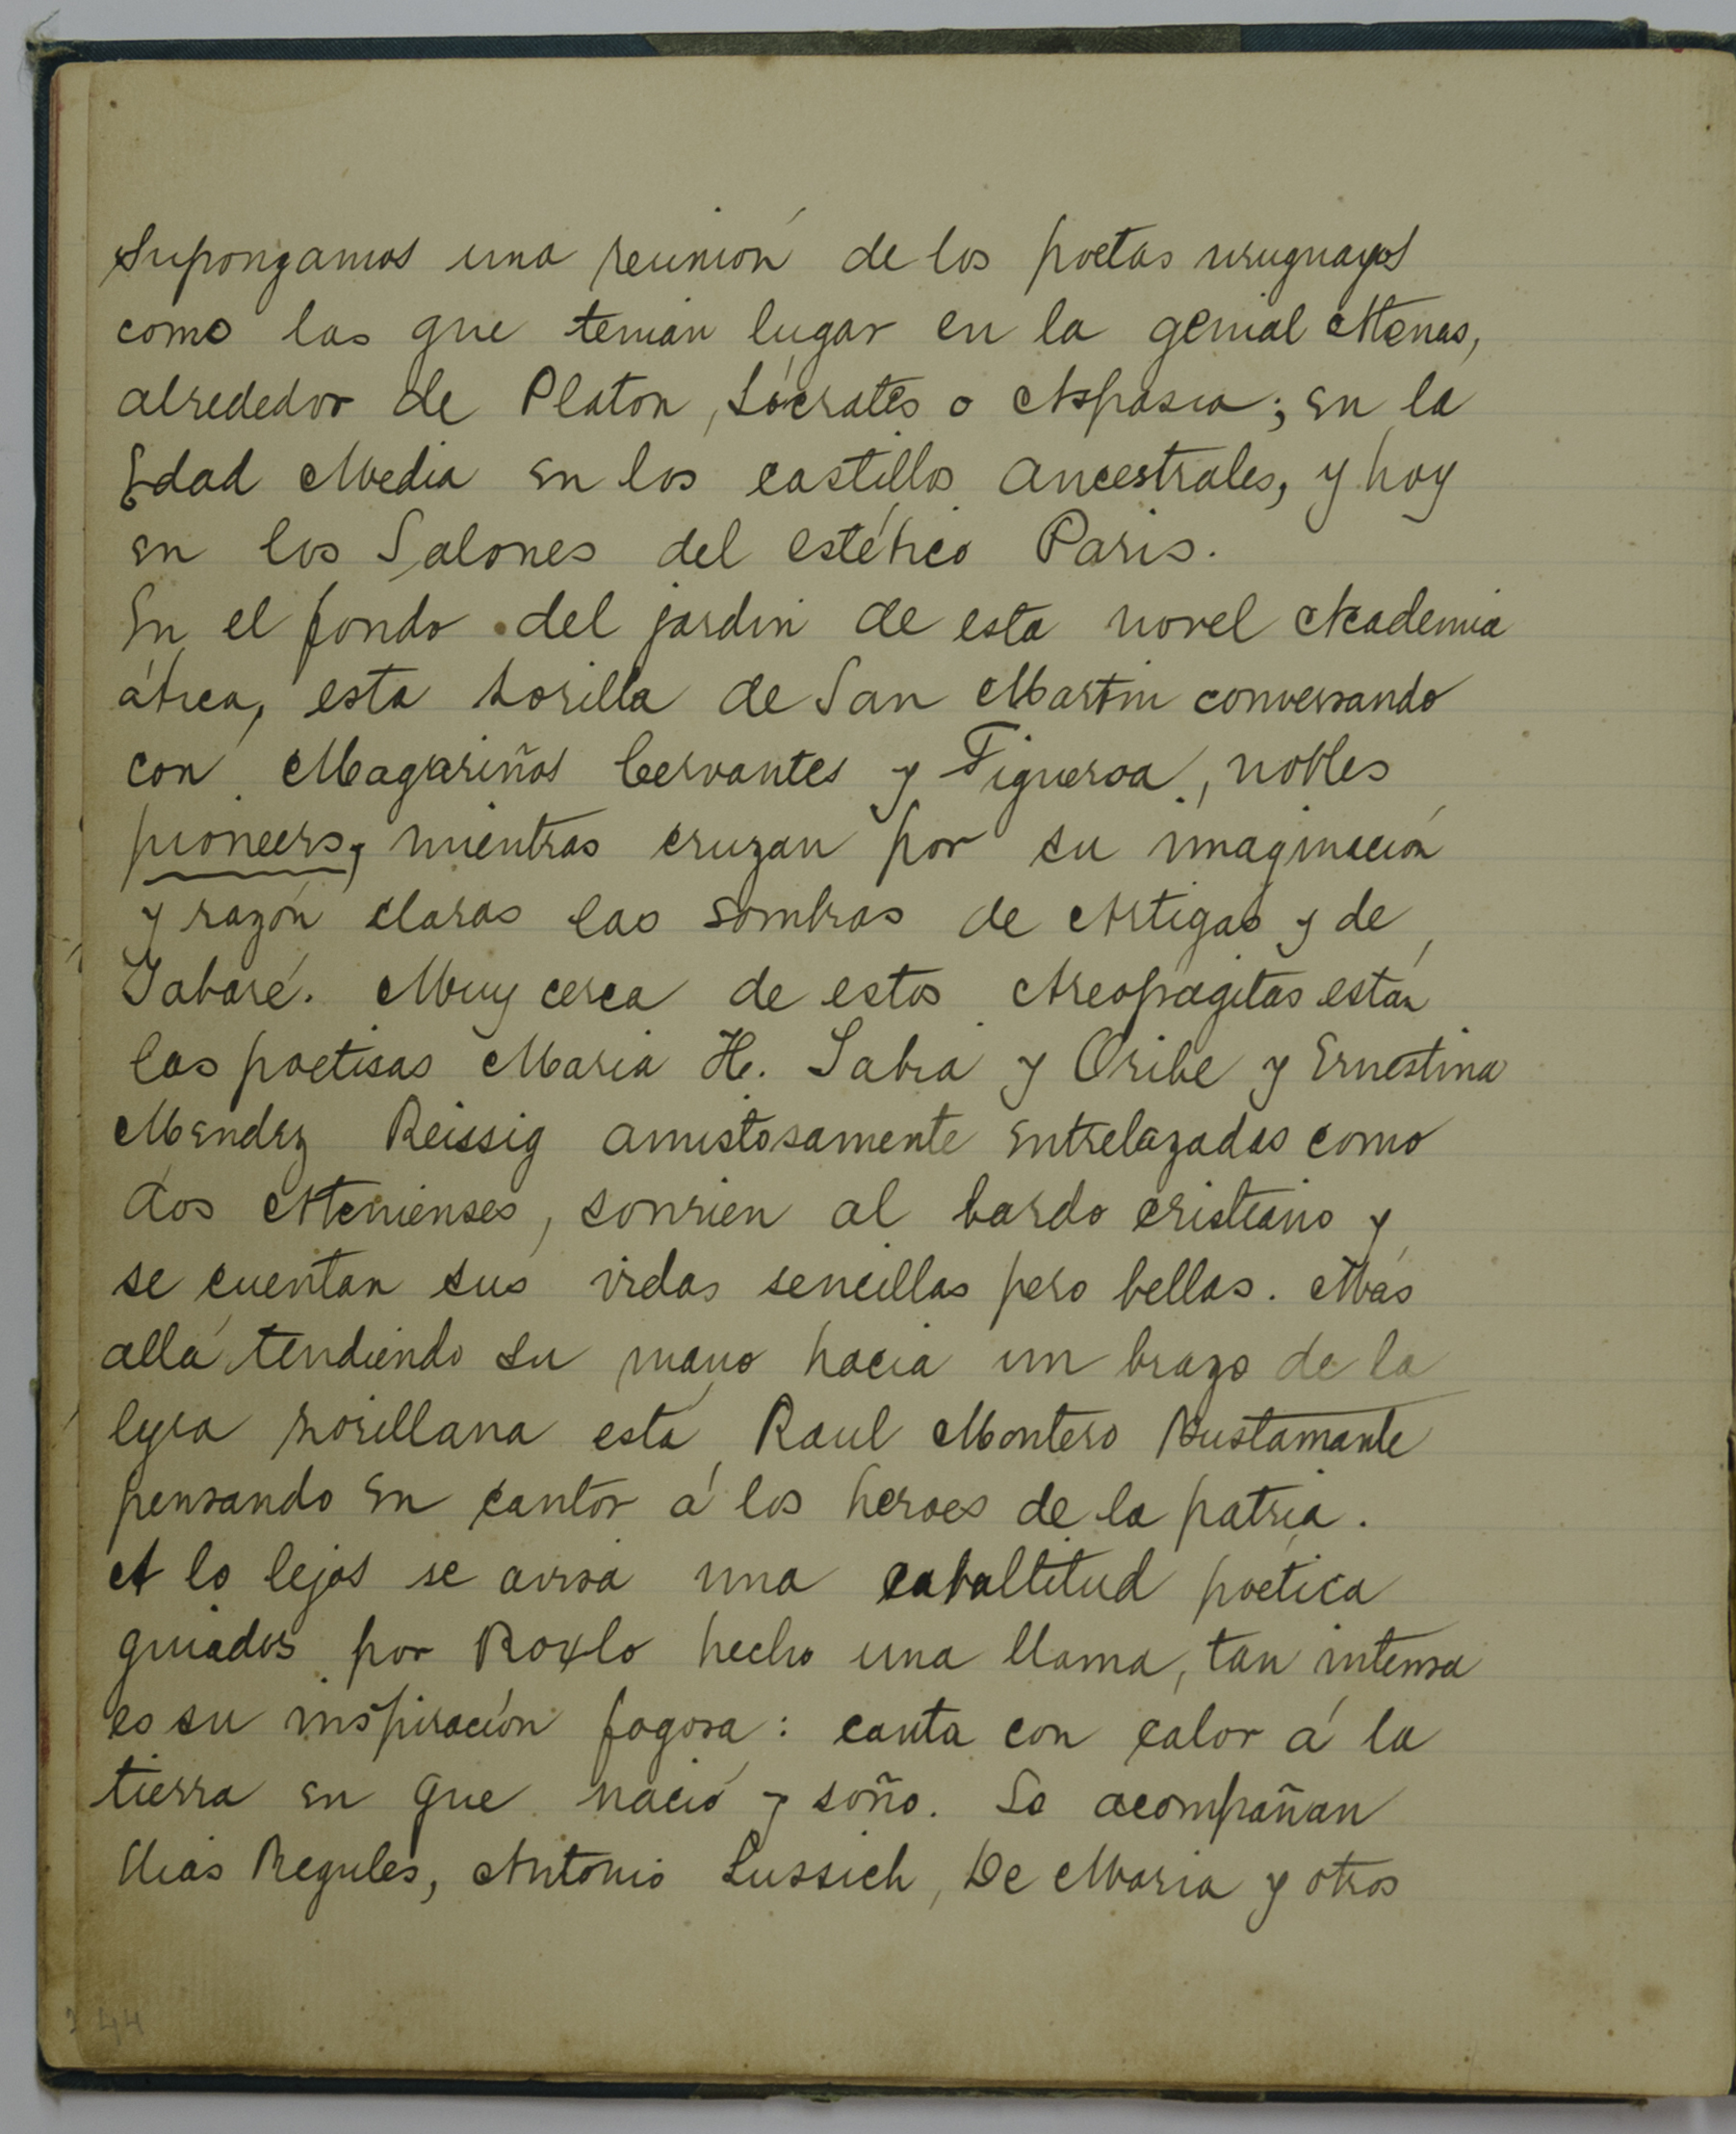 Supongamos una reunión de los poetas uruguayos
como las que tenian lugar en la genial Atenas,
alrededor de Platon, Sócrates o Aspasia; en la
Edad Media en los castillos ancestrales, y hoy
en los Salones del estético Paris.
En el fondo del jardin de esta novel Academia
ática, esta Zorilla de San Martin conversando
con Magariños Cervantes y Figueroa, nobles
pioneers, mientras cruzan por su imaginación
y razón claras las sombras de Artigas y de
Tabaré. Muy cerca de estos Areopagitas están
las poetisas Maria H. Sabia y Oribe y Ernestina
Mendez Reissig amistosamente entrelazadas como
dos Atenienses, sonrien al bardo cristiano y
se cuentan sus vidas sencillas pero bellas. Más
allá tendiendo su mano hacia un brazo de la
lyra zorillana está Raul Montero Bustamante
pensando en cantor á los heroes de la patria.
A lo lejos se avisa una cabaltitud poética
guiados por Roxlo hecho una llama, tan intensa
es su inspiración fogosa: canta con calor á la
tierra en que nació y soño. Lo acompañan
Elias Regules, Antonio Lussich, De Maria y otros
44